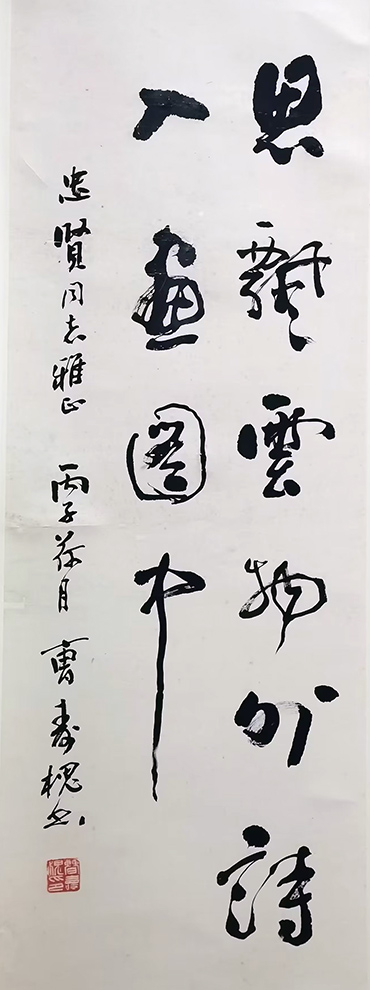 思飄雲物外詩
入畫圖中
忠賢同志雅正 丙子荷月 曹壽槐書